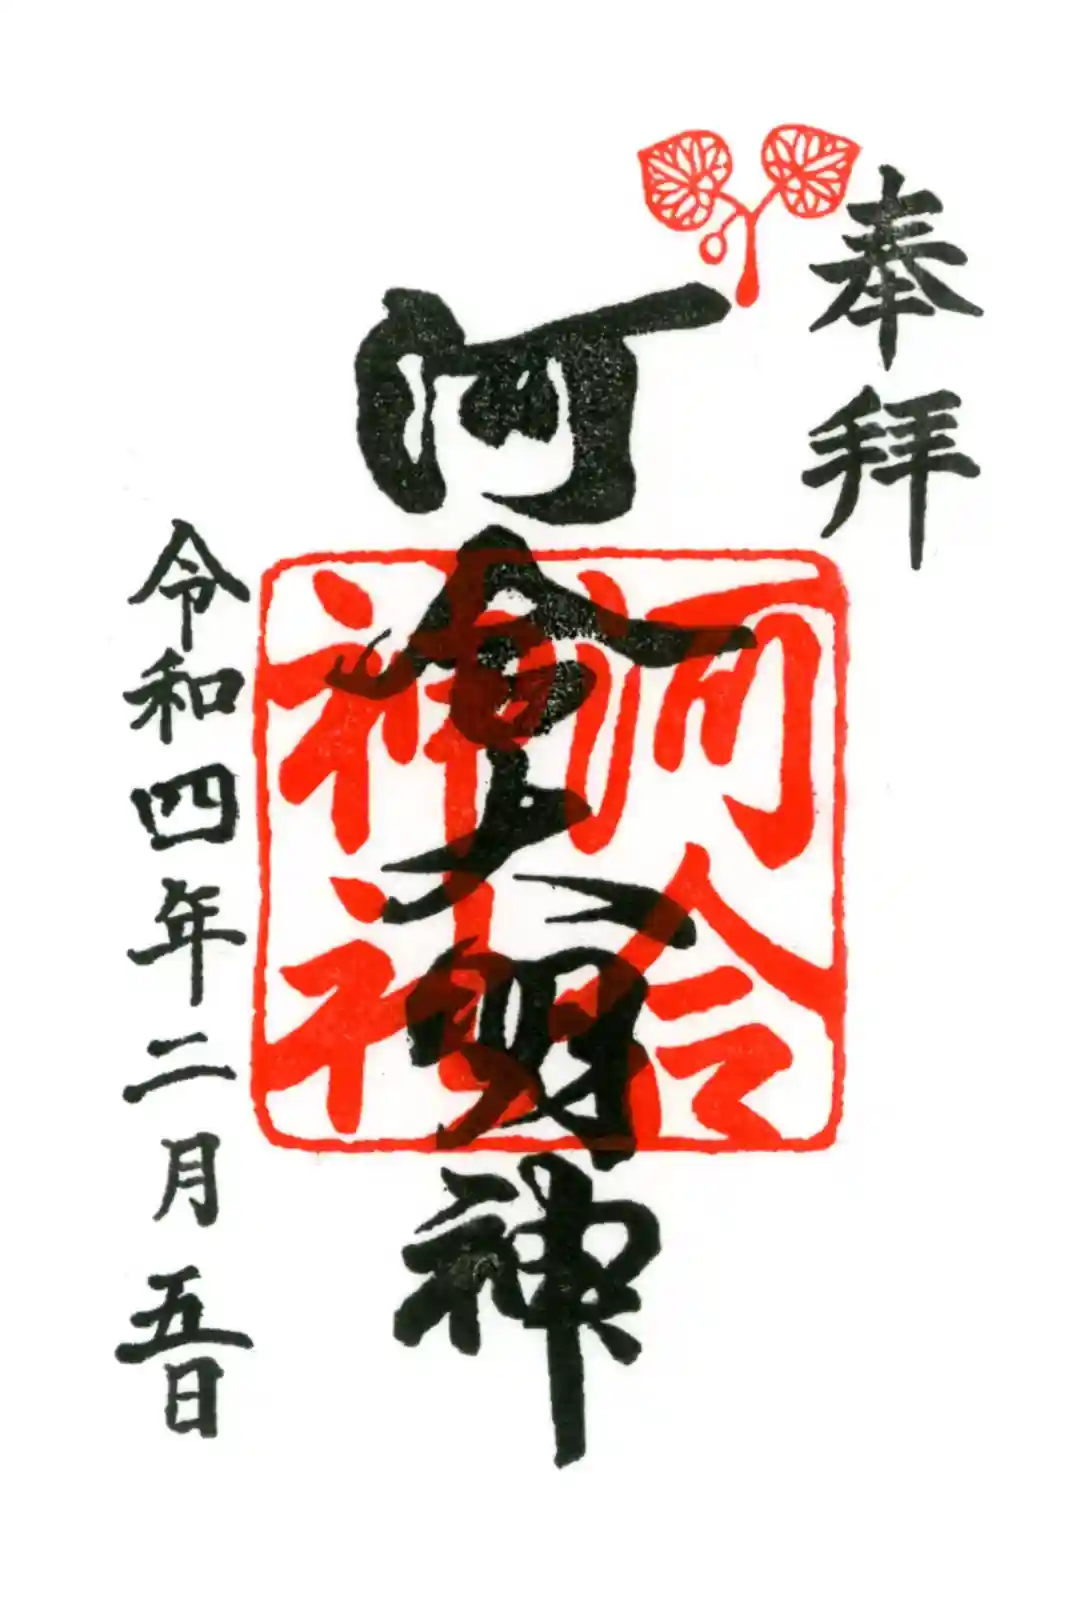 奉拝
河合大明神
河合
神社
令和四年二月五日